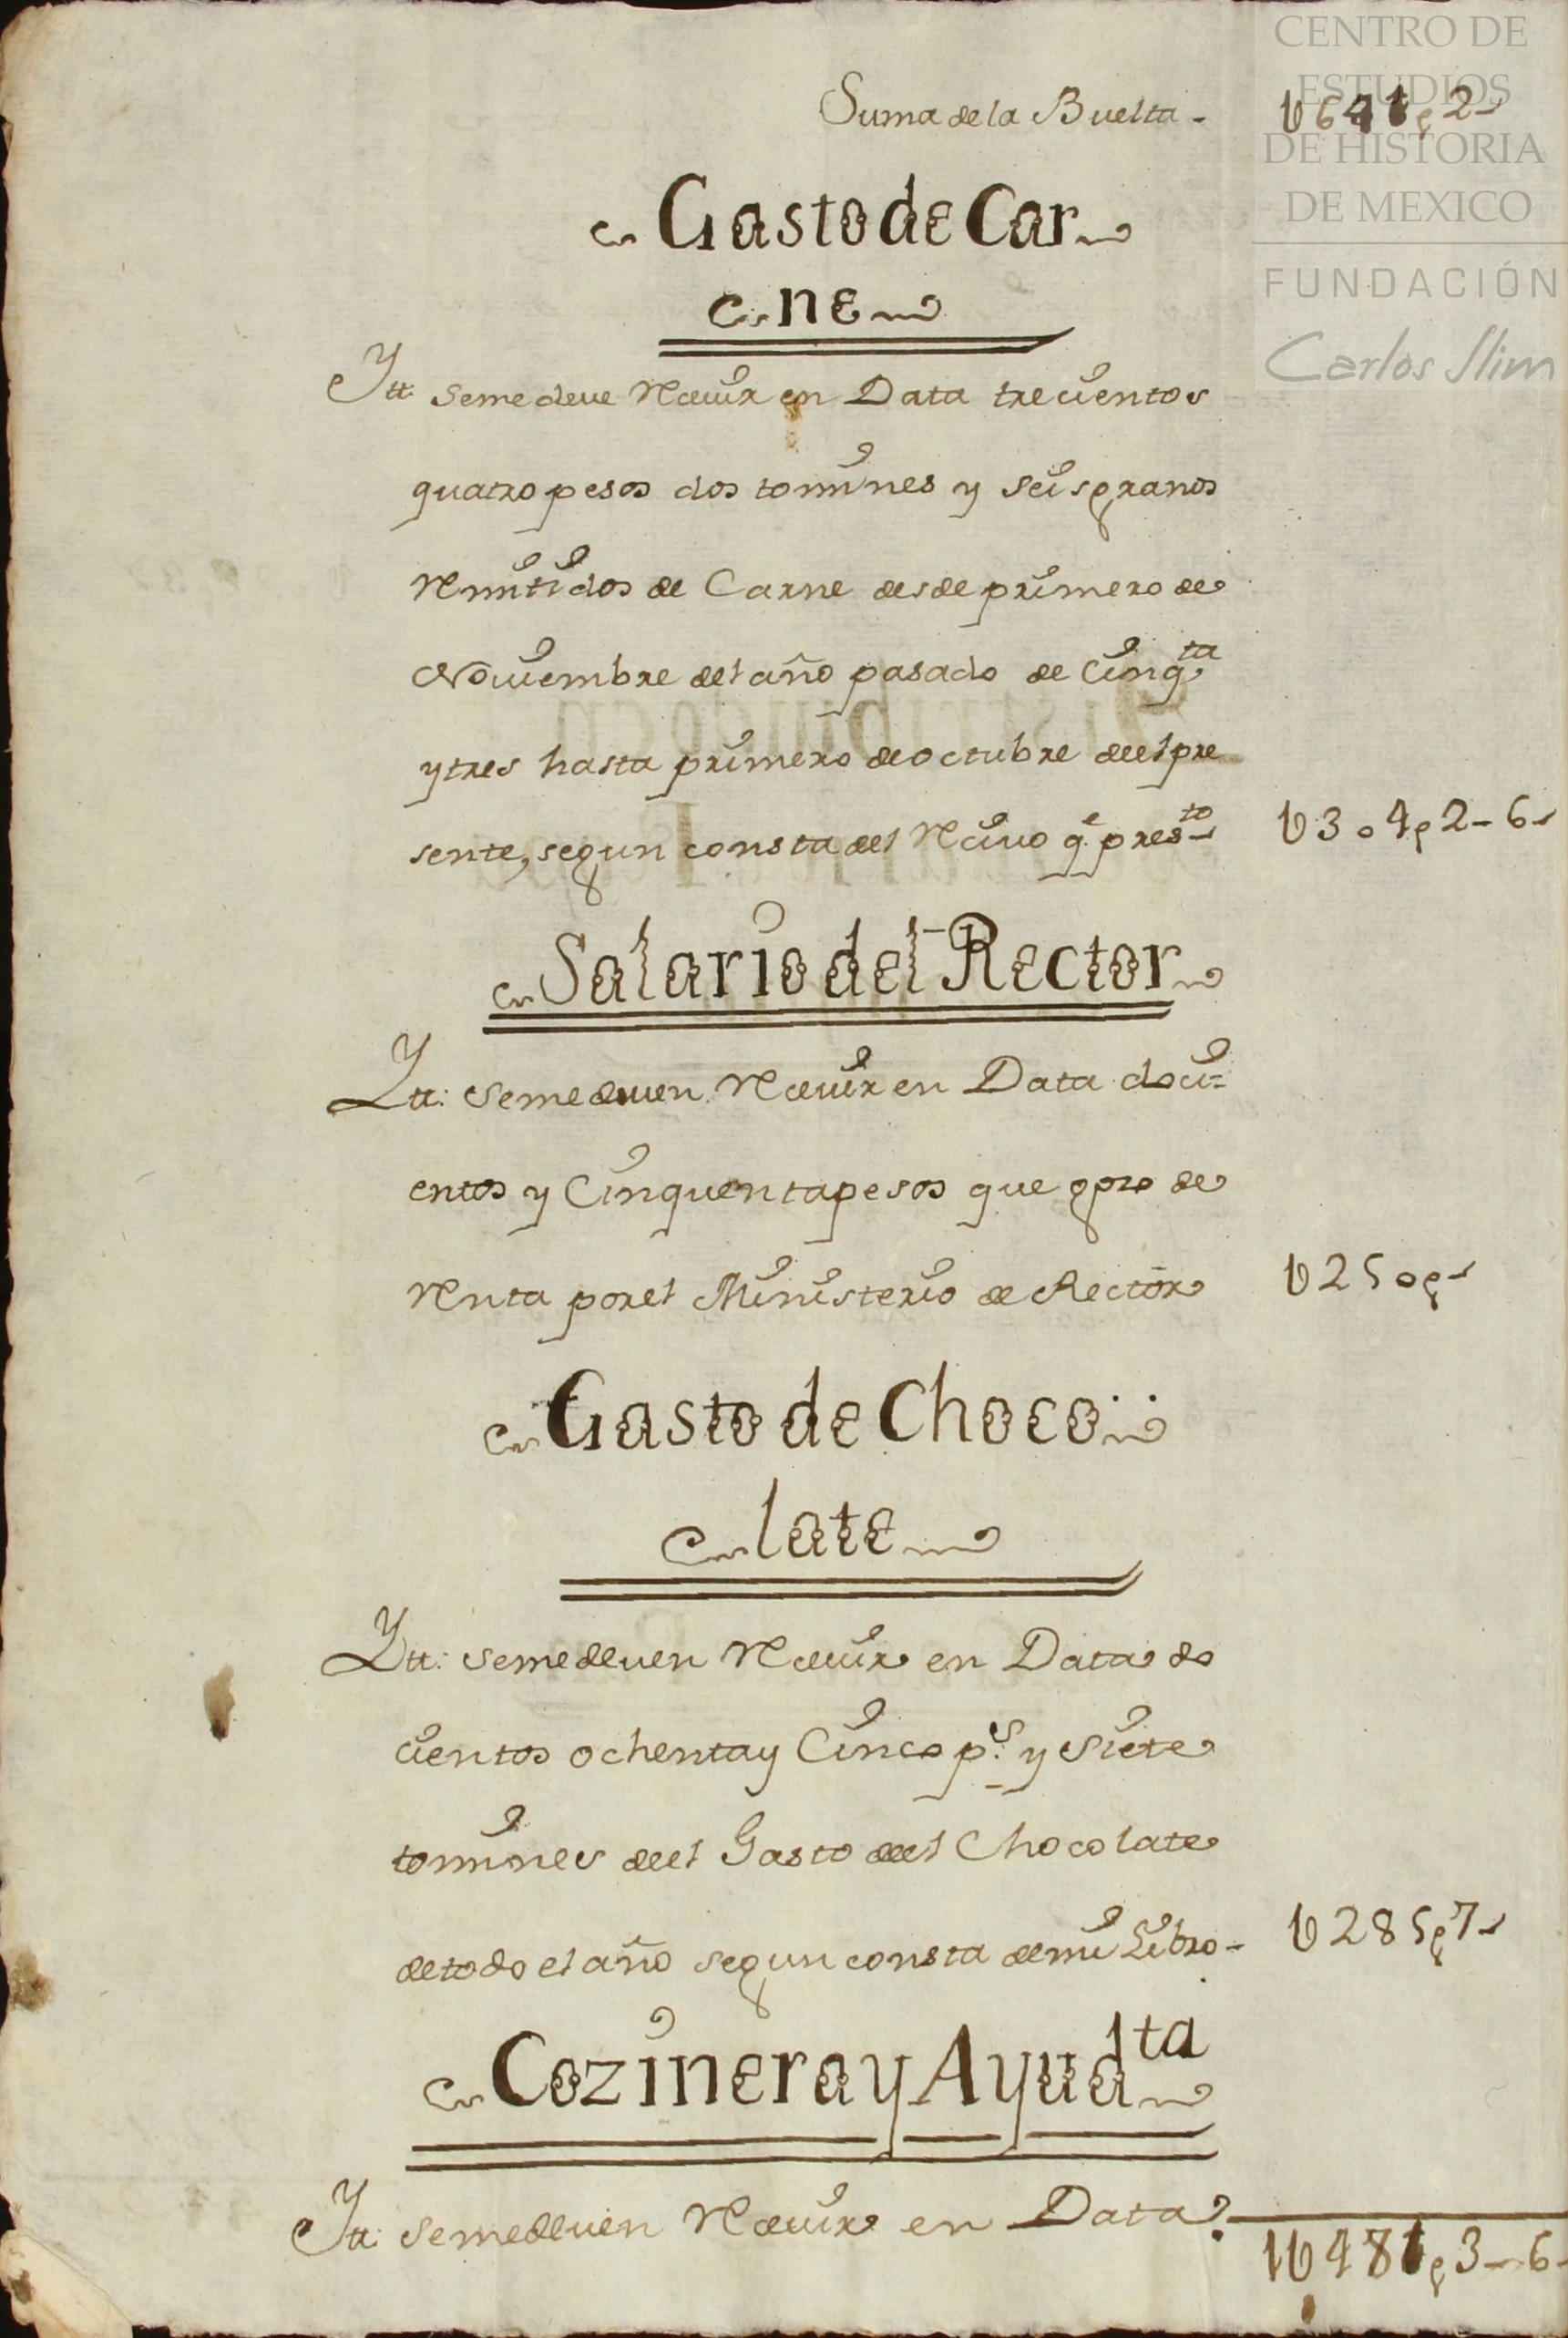 CENTRO DE
ESTUDIOS
DE HISTORIA
DE MEXICO
FUNDACIÓN
Carlos Slim
Suma de la Buelta - U641p 2-
Gasto de Car
ne
Ytt. seme deve Recivir en Data trecientos
quatro pesos dos tomines y seis granos
Remitidos de Carne desde primero de
Noviembre del año pasado de Cinqta
y tres hasta primero de octubre de el pre
sente, segun consta del Recivo qe presto U304p 2-6-
Salario del Rector
Ytt: seme deven Recivir en Data doci=
entos y Cinquenta pesos que gozo de
Renta por el Ministerio de Rector U250p-
Gasto de Choco..
late
Ytt: seme deven Recivir en Data do
cientos ochenta y Cinco ps. y siete
tomines de el Gasto de el Chocolate
de todo el año segun consta de mi Libro - U285p 7-
Cozinera y Ayudta
Ytt. seme deven Recivir en Data
1U481p 3-6-